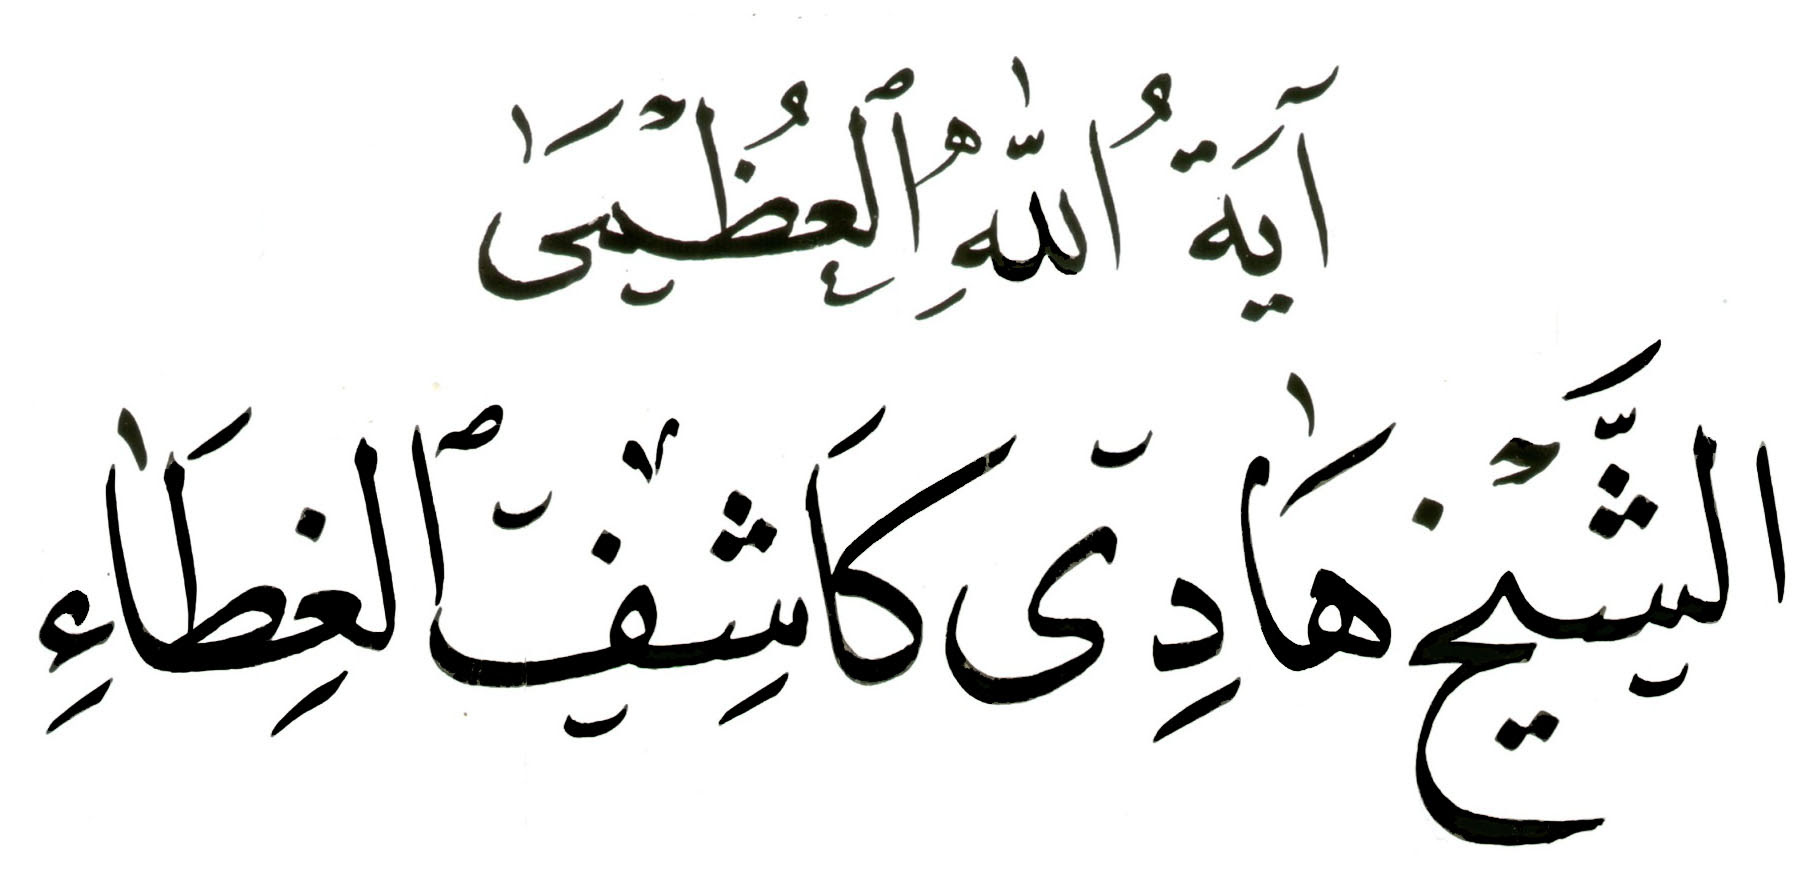 آيَةُ اللّٰهِ ٱلْعُظْمىٰ
الشَّيْخ هَادِی كَاشِف ٱلغِطَاءِ